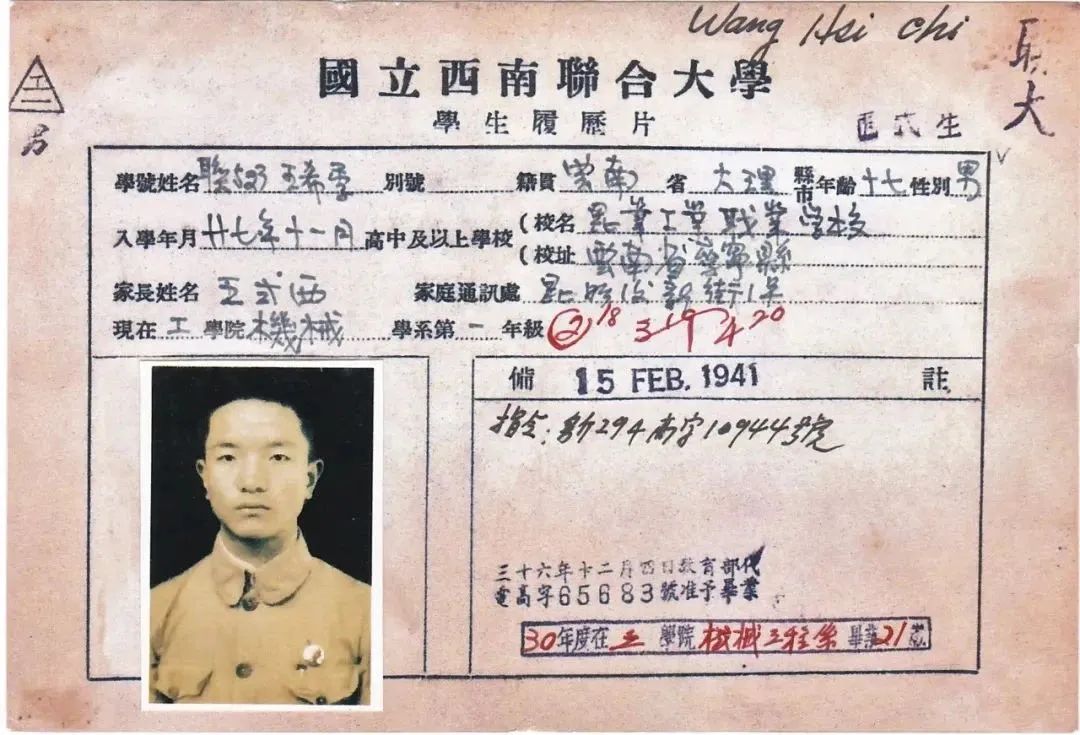 Wang Hsi Chi
工
男
國立西南聯合大學
學生履歷片
正式生
學號姓名 聯523 王希季 別號 籍貫 雲南 省 大理 縣市 年齡 十七 性別 男
入學年月 廿七年十一月 高中及以上學校 (校名 昆華工業職業學校
(校址 雲南省 縣
家長姓名 王式西 家庭通訊處 昆明 新街
現在 工 學院 機械 學系第 一 年級 ② 18 3 19 4 20
備 15 FEB. 1941 註
指令:新294高字10944號
三十六年十二月四日教育部代
電高字65683號准予畢業
30年度在工學院機械工程系畢業21